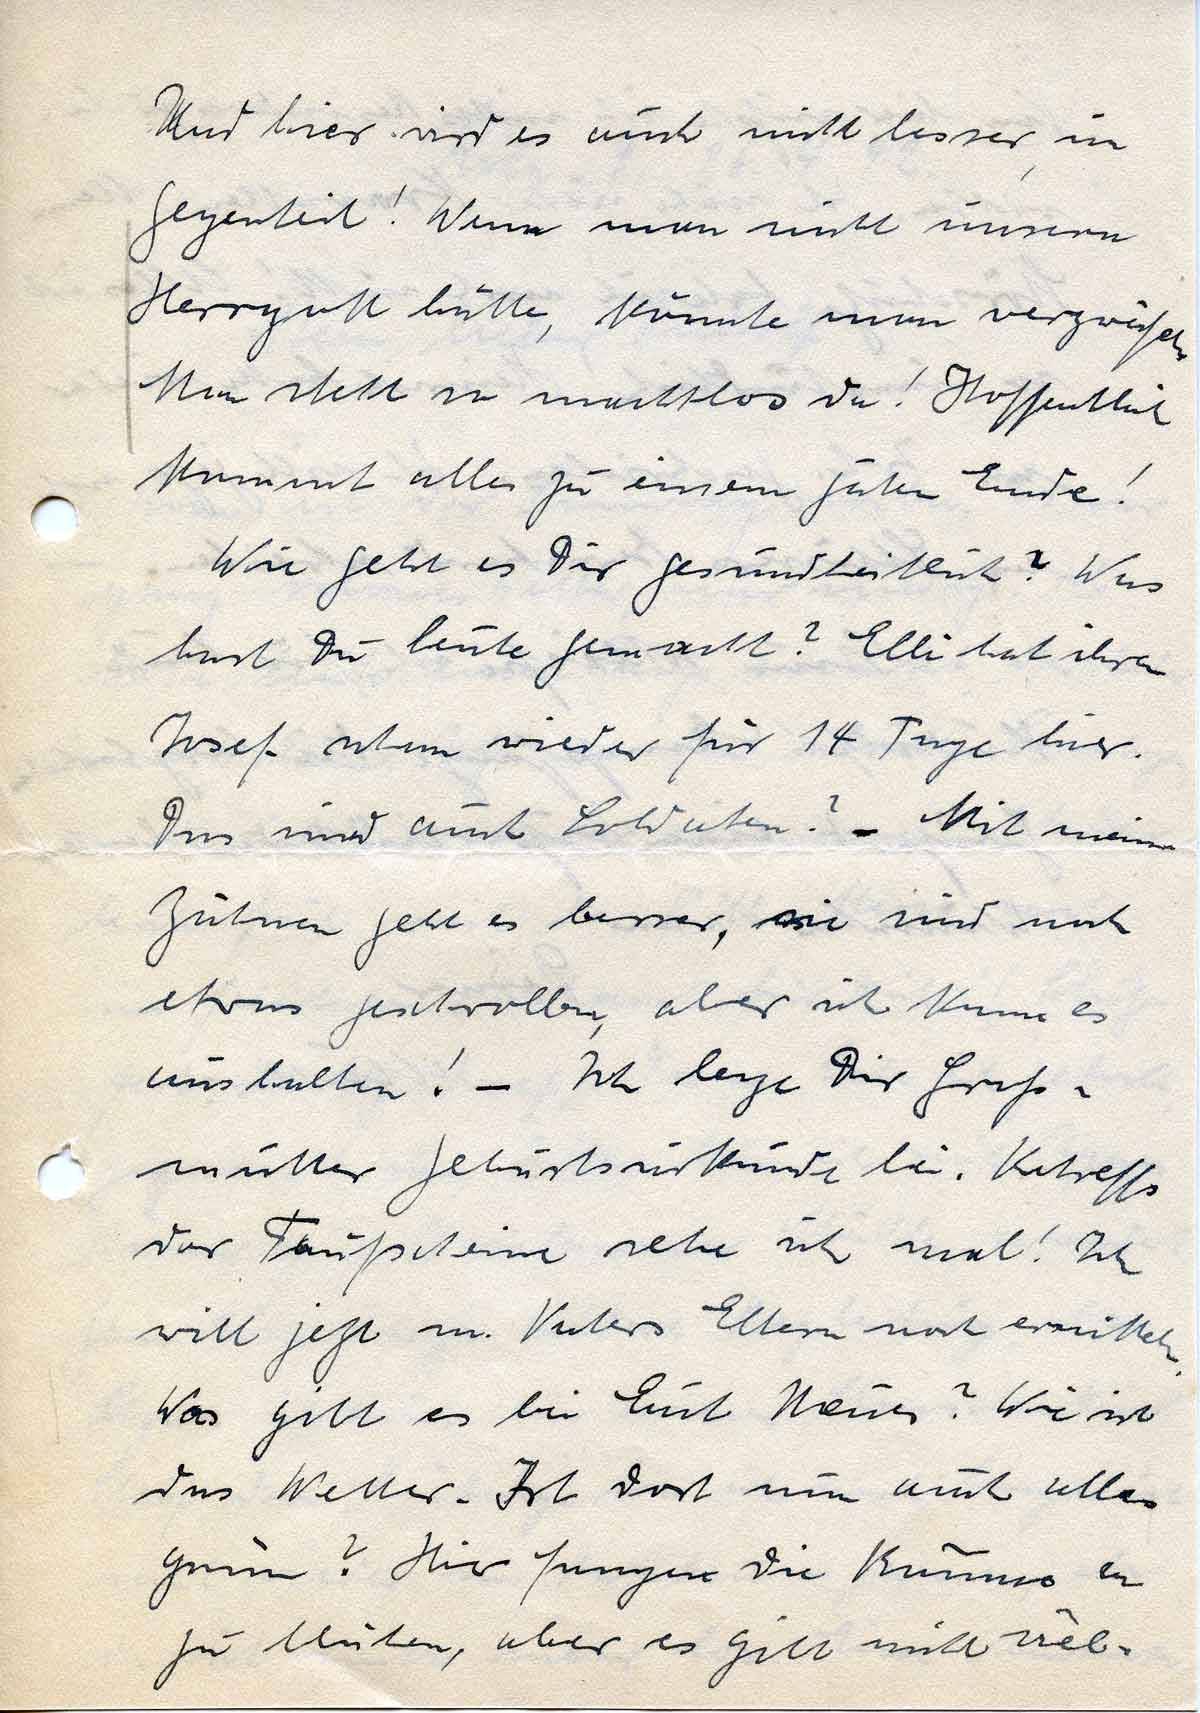 Und hier wird es auch nicht besser, im
Gegenteil! Wenn man nicht unsern
Herrgott hätte, könnte man verzweifeln.
Man steht so machtlos da! Hoffentlich
kommt alles zu einem guten Ende!
Wie geht es Dir gesundheitlich? Was
hast Du heute gemacht? Elli hat ihren
Josef schon wieder für 14 Tage hier.
Das sind auch Soldaten? – Mit meinen
Zähnen geht es besser, sie sind noch
etwas geschwollen, aber ich kann es
aushalten! – Ich lege Dir Groß-
mutter Geburtsurkunde bei. Betreffs
der Taufscheine sehe ich mal! Ich
will jetzt m. Vaters Eltern noch ermitteln.
Was gibt es bei Euch Neues? Wie ist
das Wetter. Ist dort nun auch alles
grün? Hier fangen die Bäume an
zu blühen, aber es gibt nicht viel.